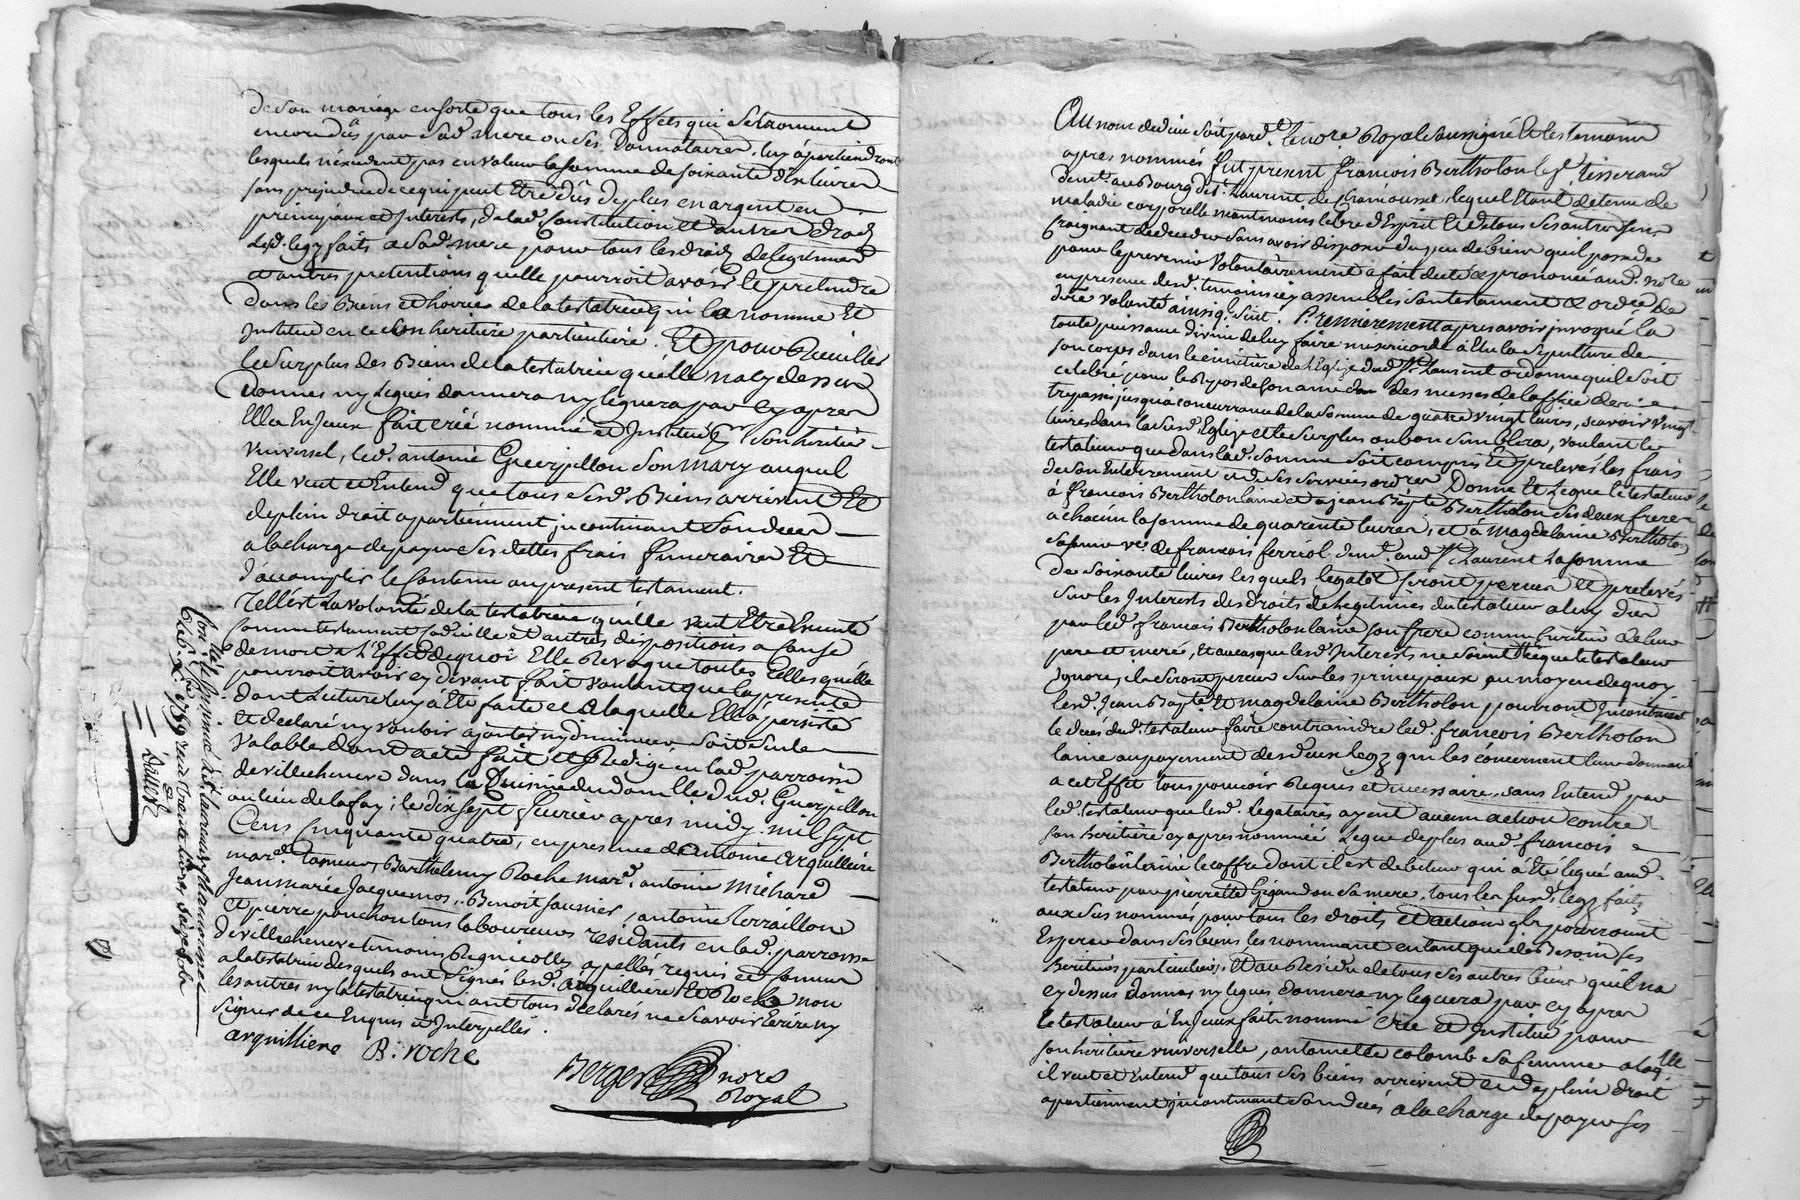 de son mariage ensorte que tous les Effets qui setrouvent
encore dûs par sad. mere ou ses Donnataires, luy apartiendront
lesquels n'éxcedent pas en valeur la somme de soixante dix livres
sans prejudice de ce qui peut Etre dûs de plus en argent en
principaux et Interests, de lad. Constitution et autres droits
Led. legz faits a sad. mere pour tous les droits de legitimes
et autres pretentions quelle pourroit avoir et pretendre
dans les Biens et hoirie de la testatrice qui la nomme Et
Institue en ce son heritiere particuliere. Et pour Recuillir
le surplus des Biens de la testatrice qu'elle n'a cy dessus
Donnes ny Legués donnera ny leguera par cy apres
Elle a Enjeux fait créé nommé et Institué pr son heritier
universel, led. antoine Guerpillon son mary auquel
Elle veut et Entend que tous sesd. Biens arrivent Et
de plein droit apartiennent incontinant son deces
a la charge de payer ses dettes frais funeraires Et
d'accomplir le Contenu au present testament.
Tell'est La volonté de la testatrice qu'elle veut Etre Executé
Comme testament Codicille et autres dispositions a Cause
de mort a l'Effet de quoi Elle Revoque toutes Celles qu'elle
pourroit avoir cy devant fait voulant que la presente
dont Lecture luy à Eté faite et a laquelle Elle à persisté
Et declaré ny vouloir ajouter ny diminuer, soit seule
valable dont acte fait et Redigé en lad. parroisse
de villecheneve dans la Cuisine du domicille dud. Guerpillon
au lieu de lafay; le dix sept fevrier apres midy mil sept
Cens Cinquante quatre, en presence de antoine arquilliere
mard. taneur, Barthelemy Roche mard. antoine Michard
Jean marie Jacquemos, Benoit saunier, antoine Terraillon
Et pierre ponchon tous laboureurs residants en lad. parroisse
de villecheneve temoins Regnicolles apellés requis et connus
a la testatrice desquels ont signés lesd. arquilliere Et Roche non
les autres ny la testatrice qui ont tous déclarés ne sçavoir Ecrire ny
signer de ce Enquis et Interpellés.
arquilliere B. roche
Berger nore
Royal
Au nom de dieu soit pard. le nore. Royal soussigné Et les temoins
apres nommés fut present françois Bertholon le jne. tisserand
demt. au Bourg de St. Laurent de Chamousset, lequel Etant detenu de
maladie corporelle neantmoins libre d'Esprit Et de tous ses autres sens
Craignant de deceder sans avoir disposer du peu de bien quil possede
pour le prevenir volontairement a fait dicté et prononcé aud. nore
en presence desd. temoins icy assemblés son testament et ordre de
dre volonté ainsi q. suit. Premierement apres avoir invoqué la
toute puissance divine de luy faire misericorde à Elu la sepulture de
son corps dans le cimetiere de l'Eglise dud. St. Laurent ordonne quil soit
celebré pour le Repos de son ame des messes de l'office des
trepassés jusqu'a concurrance de la somme de quatre vingt livres, scavoir vingt
livres dans lasusd. Eglise et le surplus ou bon semblera, voulant le
testateur que dans lad. somme soit compris Et prelevés les frais
de son Enterrement et de ses services ordres Donne Et Legue le testateur
à francois Bertholon laine et a jean Bapte. Bertholon ses deux freres
a chacun la somme de quarente livres, et à Magdelaine Bertholon
sa sœur ve. de francois ferriol demt. aud. St. Laurent La somme
de soixante livres lesquels legats seront percus Et prelevés
sur les Interests des droits de legitimes du testateur a luy dues
par led. francois Bertholon laine son frere comme heritier de leur
pere et mere, Et au cas que lesd. Interests ne soient
ignore, ils seront percus sur les principaux, au moyen de quoy
lesd. Jean Bapte. Et magdelaine Bertholon pourront Incontinant
le deces dud. testateur faire contraindre led. francois Bertholon
laine au payement desd. deux legz qui les concernent leur donnant
a cet Effet tous pouvoir Requis et necessaire, sans Entend. par
led. testateur que lesd. Legataires ayent aucun action contre
son heritiere cy apres nommée Legue de plus aud. francois
Bertholon laine le coffre dont il est debiteur qui a Eté legué aud.
testateur par pierrette Gigandon sa mere, tous les susd. legz faits
aux sus nommés pour tous les droits et actions qls. pourroient
Esperer dans ses biens les nommant en tant que de Besoin ses
heritiers particuliers. Et au Residu de tous ses autres biens qu'il n'a
cy dessus donnes ny legues donnera ny leguera par cy apres
Le testateur à Enjeux fait nommé crée et Institué pour
son heritiere universelle, antoinette colomb sa femme a laqlle
il veut et Entend que tous ses biens arrivent Et de plein droit
apartiennent incontinant son deces a la charge de payer ses